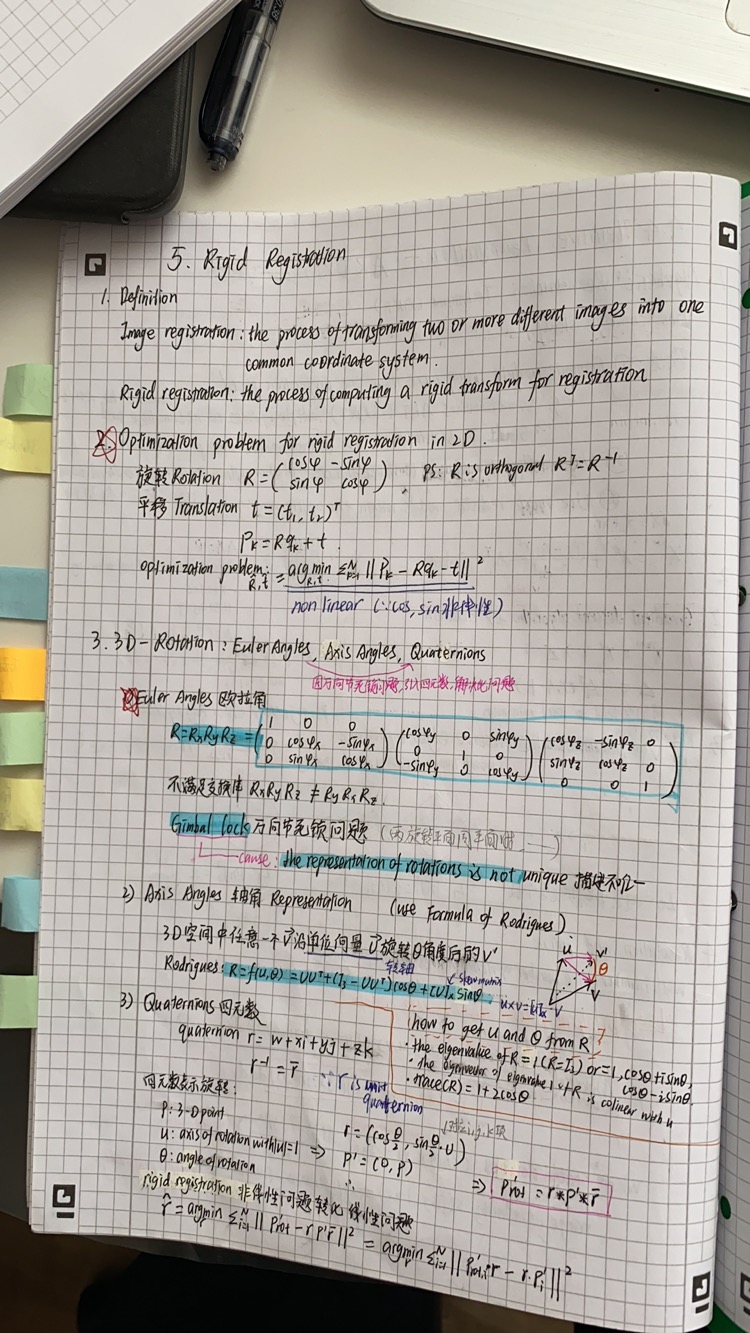 5. Rigid Registration
1. Definition
Image registration: the process of transforming two or more different images into one
common coordinate system.
Rigid registration: the process of computing a rigid transform for registration
2. Optimization problem for rigid registration in 2D.
旋转 Rotation R = (cosφ -sinφ
sinφ cosφ) . PS: R is orthogonal Rᵀ = R⁻¹
平移 Translation t = (t₁, t₂)ᵀ
Pₖ = Rqₖ + t .
optimization problem: R̂, t̂ = argmin_{R,t} Σᴺₖ₌₁ ||Pₖ - Rqₖ - t||²
non linear (∵cos, sin 非线性)
3. 3D-Rotation : Euler Angles, Axis Angles, Quaternions
因万向节死锁问题,引入四元数,解决此问题
Euler Angles 欧拉角
R=RxRyRz = (1 0 0
0 cosφx -sinφx
0 sinφx cosφx) (cosφy 0 sinφy
0 1 0
-sinφy 0 cosφy) (cosφz -sinφz 0
sinφz cosφz 0
0 0 1)
不满足交换律 RxRyRz ≠ RyRxRz .
Gimbal lock 万向节死锁问题 (两旋转平面同平面时 ...)
cause: the representation of rotations is not unique 描述不唯一
2) Axis Angles 轴角 Representation (use Formula of Rodrigues)
3D空间中任意一个V沿单位向量U旋转θ角度后的V'
转轴
Rodrigues: R = f(U,θ) = UUᵀ + (I₃ - UUᵀ)cosθ + [U]ₓ sinθ . skew matrix
u×v = [u]ₓ v
u v' θ v
3) Quaternions 四元数
quaternion r = w + xi + yj + zk
r⁻¹ = r̄
∵ r is unit
quaternion
how to get u and θ from R ?
· the eigenvalue of R = 1 (R=I₃) or = 1, cosθ+isinθ,
cosθ-isinθ.
· the eigenvector of eigenvalue 1 of R is colinear with u
· trace(R) = 1+2cosθ
四元数表示旋转:
P: 3-D point
u: axis of rotation with |u|=1 ⇒ r = (cos θ/2, sin θ/2 · u)
θ: angle of rotation p' = (0, p)
⇒ P'rot = r * p' * r̄
rigid registration 非线性问题转化线性问题
r̂ = argmin_r Σᴺᵢ₌₁ ||P'rot - r p' r̄||² = argmin_r Σᴺᵢ₌₁ ||P'rot,i · r - r · Pᵢ'||²